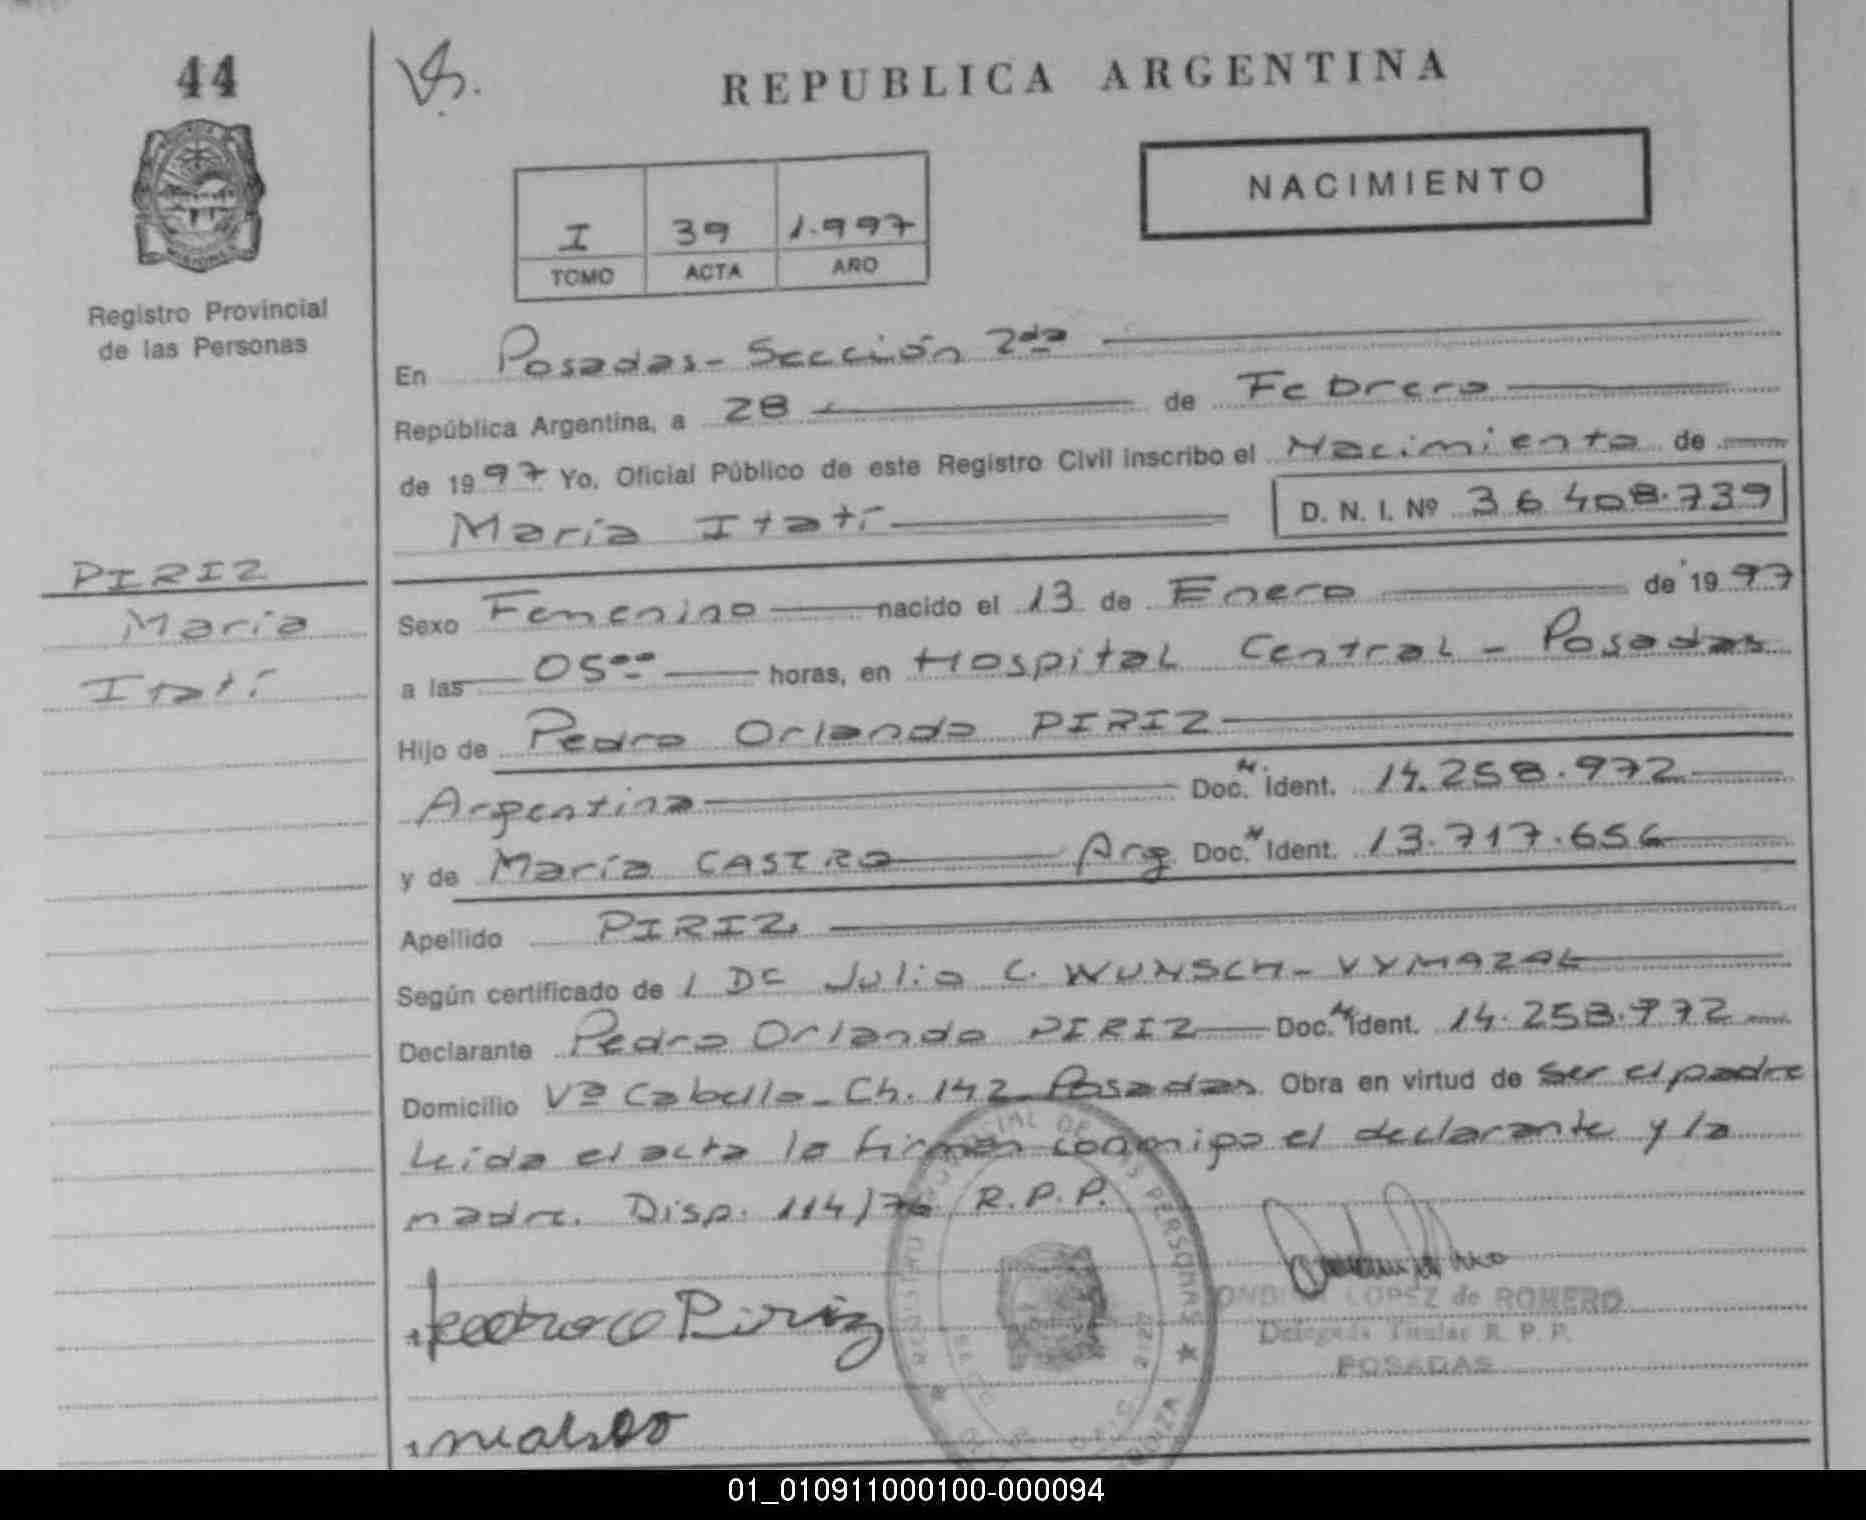 44
REPUBLICA ARGENTINA
NACIMIENTO
I 39 1.997
TOMO ACTA AÑO
Registro Provincial
de las Personas
En Posadas - Sección 2da
República Argentina, a 28 de Febrero
de 1997 Yo, Oficial Público de este Registro Civil inscribo el Nacimiento de
María Itatí D. N. I. Nº 36 408.739
PIRIZ
María
Itatí
Sexo Femenino nacido el 13 de Enero de 1997
a las 05 00 horas, en Hospital Central - Posadas
Hijo de Pedro Orlando PIRIZ
Argentina Doc. N. Ident. 14.258.972
y de María CASTRO Arg Doc. N Ident. 13.717.656
Apellido PIRIZ
Según certificado de / Dc Julio C. WUNSCH - VYMAZAL
Declarante Pedro Orlando PIRIZ Doc. N Ident. 14.258.972
Domicilio Vª Cabello - Ch. 142 Posadas Obra en virtud de ser el padre
Leída el acta la firman conmigo el declarante y la
madre. Disp. 114/76 R.P.P.
Piriz
LOPEZ de ROMERO
Delegada Titular R. P. P.
POSADAS
REGISTRO PROVINCIAL DE LAS PERSONAS
01_010911000100-000094